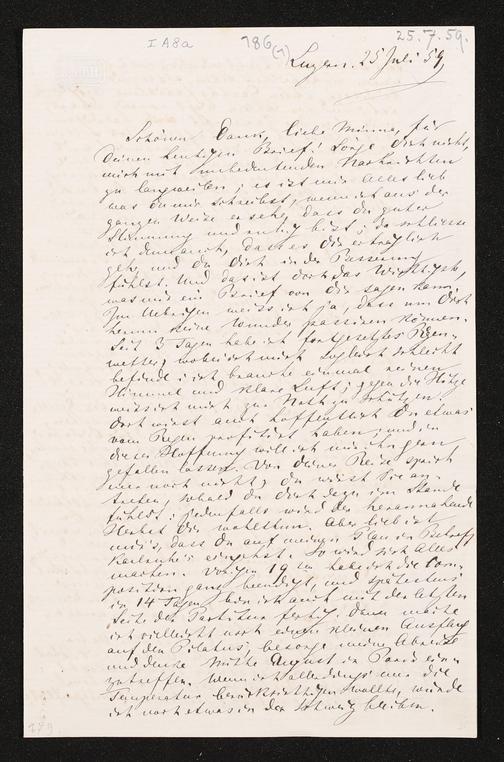 I A 8a
786 (1)
25.7.59.
Luzern. 25 Juli 59
Schönen Dank, liebe Minna, für
Deinen heutigen Brief! Sorge Dich nicht,
mich mit unbedeutenden Nachrichten
zu langweilen; es ist mir Alles lieb
was Du mir schreibst, wenn ich aus der
ganzen Weise ersehe, dass Du guter
Stimmung und ruhig bist; so schliesse
ich dann auch, dass es Dir erträglich
geht, und Du Dich in der Besserung
fühlst. Und das ist doch das Wichtigste,
was mir ein Brief von Dir sagen kann.
Im Uebrigen weiss ich ja, dass um Dich
herum keine Wunder passiren können.
Seit 3 Tagen habe ich fortgesetztes Regen-
wetter, wobei ich mich sogleich schlecht
befinde; ich brauche einmal reinen
Himmel und klare Luft; gegen die Hitze
weiss ich mich zur Noth zu schützen.
Doch wirst auch hoffentlich Du etwas
vom Regen profitirt haben; und in
dieser Hoffnung will ich mir ihn gern
gefallen lassen. Von Deiner Reise sprich
nur noch nicht; Du wirst sie an-
treten, sobald Du Dich dazu im Stande
fühlst; jedenfalls wird der herannahende
Herbst Dir wohlthun. Aber lieb ist
mir's, dass Du auf meinen Plan in Betreff
Karlsruhe's eingehst. So wird sich Alles
machen. Vorigen 19<sup>ten</sup> habe ich die Com-
position ganz beendigt, und spätestens
in 14 Tagen bin ich auch mit der letzten
Seite der Partitur fertig, dann mache
ich vielleicht noch einen kleinen Ausflug
auf den Pilatus, besorge meine Abreise
und denke Mitte August in Paris ein-
zutreffen. Wenn ich allerdings nur die
Temperatur berücksichtigen wollte, würde
ich noch etwas in der Schweiz bleiben.